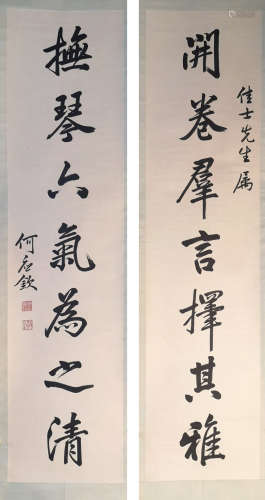 開卷羣言擇其雅
佳士先生属
撫琴六氣為之清
何應欽